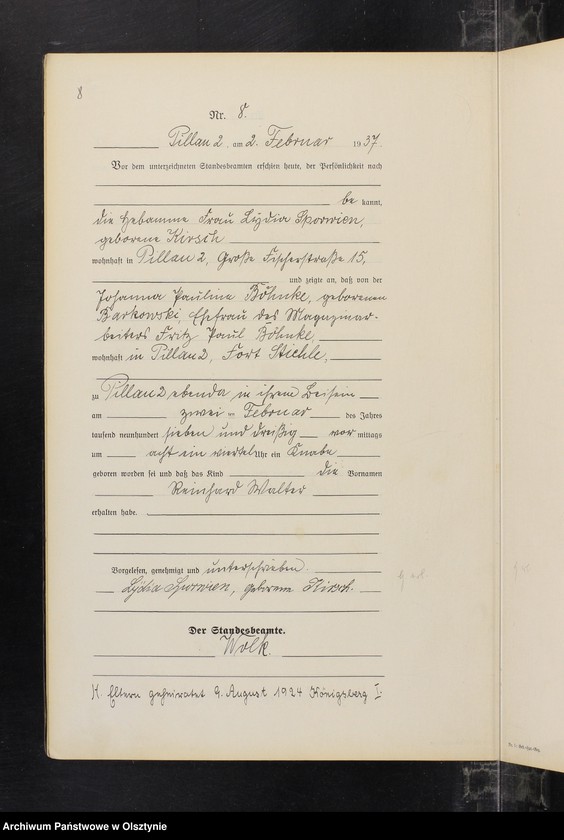 8
Nr. 8.
Pillau 2, am 2. Februar 1937.
Vor dem unterzeichneten Standesbeamten erschien heute, der Persönlichkeit nach
be kannt,
die Hebamme Frau Lydia Sporwien,
geborene Kirsch
wohnhaft in Pillau 2, Große Fischerstraße 15,
und zeigte an, daß von der
Johanna Pauline Böhnke, geborenen
Barkowski, Ehefrau des Magazinar-
beiters Fritz Paul Böhnke,
wohnhaft in Pillau 2, Fort Stiehle,
zu Pillau 2 ebenda in ihrem Beisein
am zwei ten Februar des Jahres
tausend neunhundert sieben und dreißig vor mittags
um acht ein viertel Uhr ein Knabe
geboren worden sei und daß das Kind die Vornamen
Reinhard Walter
erhalten habe.
Vorgelesen, genehmigt und unterschrieben.
Lydia Sporwien, geborene Kirsch.
Der Standesbeamte.
Wolk.
H. Eltern geheiratet 9. August 1924 Königsberg I.
Archiwum Państwowe w Olsztynie